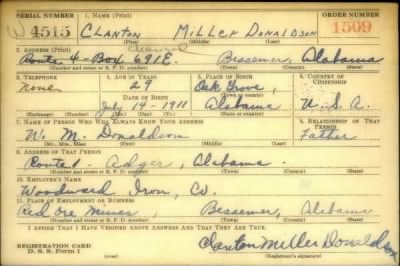 SERIAL NUMBER 1. NAME (Print) ORDER NUMBER
W 4515 CLANTON MILLER DONALDSON 1509
(First) (Middle) (Last)
2. ADDRESS (Print)
Route 4 - Box 691E. Bessemer, Alabama
(Number and street or R. F. D. number) (Town) (County) (State)
3. TELEPHONE 4. AGE IN YEARS 5. PLACE OF BIRTH 6. COUNTRY OF CITIZENSHIP
None 29 Oak Grove,
DATE OF BIRTH (Town or county)
July 19-1911 Alabama U.S.A.
(Exchange) (Number) (Mo.) (Day) (Yr.) (State or country)
7. NAME OF PERSON WHO WILL ALWAYS KNOW YOUR ADDRESS 8. RELATIONSHIP OF THAT PERSON
W. M. Donaldson Father
(Mr., Mrs., Miss) (First) (Middle) (Last)
9. ADDRESS OF THAT PERSON
Route 1 Adger, Alabama
(Number and street or R. F. D. number) (Town) (County) (State)
10. EMPLOYER'S NAME
Woodward Iron, Co.
11. PLACE OF EMPLOYMENT OR BUSINESS
Red Ore Mines, Bessemer, Alabama
(Number and street or R. F. D. number) (Town) (County) (State)
I AFFIRM THAT I HAVE VERIFIED ABOVE ANSWERS AND THAT THEY ARE TRUE.
REGISTRATION CARD Clanton Miller Donaldson
D. S. S. Form 1 (Registrant's signature)